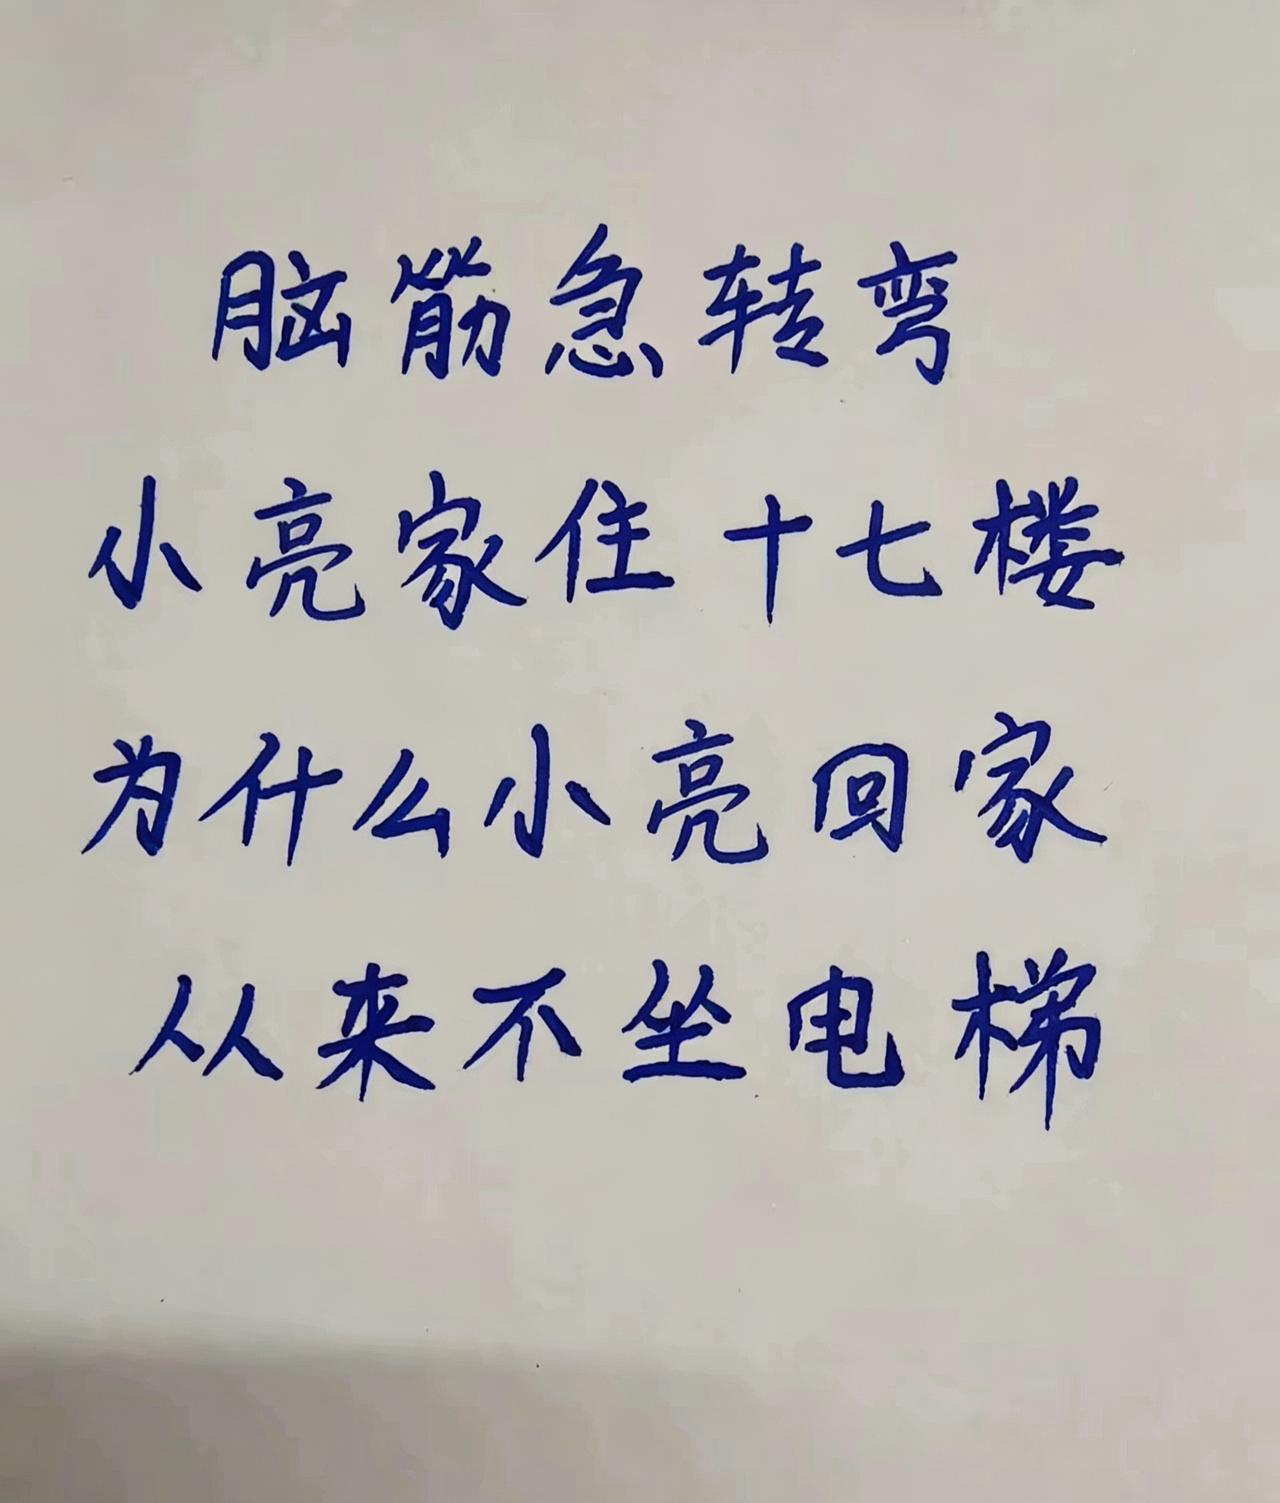 脑筋急转弯
小亮家住十七楼
为什么小亮回家
从来不坐电梯